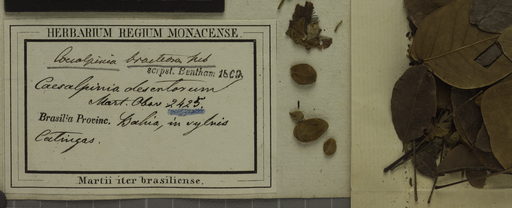 HERBARIUM REGIUM MONACENSE.
Caesalpinia bracteosa Tul
scrpst. Bentham 1869.
Caesalpinia desertorum
Mart. Obs. 2425.
Brasilia Provinc. Bahia, in sylvis
Catingas.
Martii iter brasiliense.